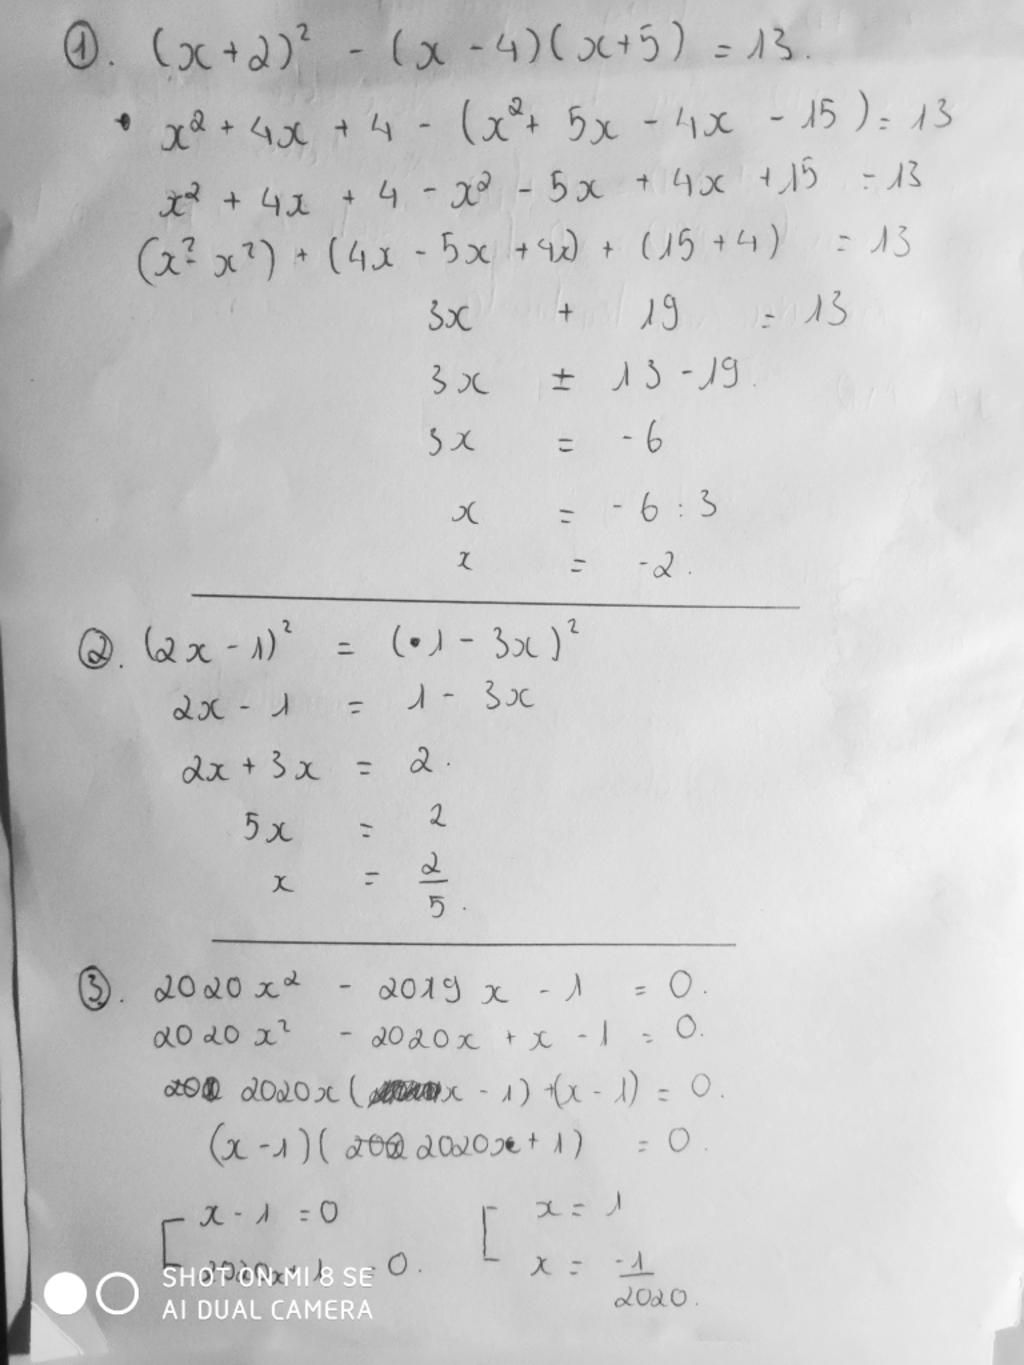 ①. (x+2)² - (x-4)(x+5) = 13.
x² + 4x + 4 - (x² + 5x - 4x - 15) = 13
x² + 4x + 4 - x² - 5x + 4x + 15 = 13
(x² - x²) + (4x - 5x + 4x) + (15 + 4) = 13
3x + 19 = 13
3x ± 13 - 19.
3x = -6
x = -6 : 3
x = -2.
②. (2x - 1)² = (1 - 3x)²
2x - 1 = 1 - 3x
2x + 3x = 2.
5x = 2
x = 2/5.
③. 2020x² - 2019x - 1 = 0.
2020x² - 2020x + x - 1 = 0.
2020x(x - 1) + (x - 1) = 0.
(x - 1)(2020x + 1) = 0.
[ x - 1 = 0 [ x = 1
2020x + 1 = 0. x = -1/2020.
SHOT ON MI 8 SE
AI DUAL CAMERA